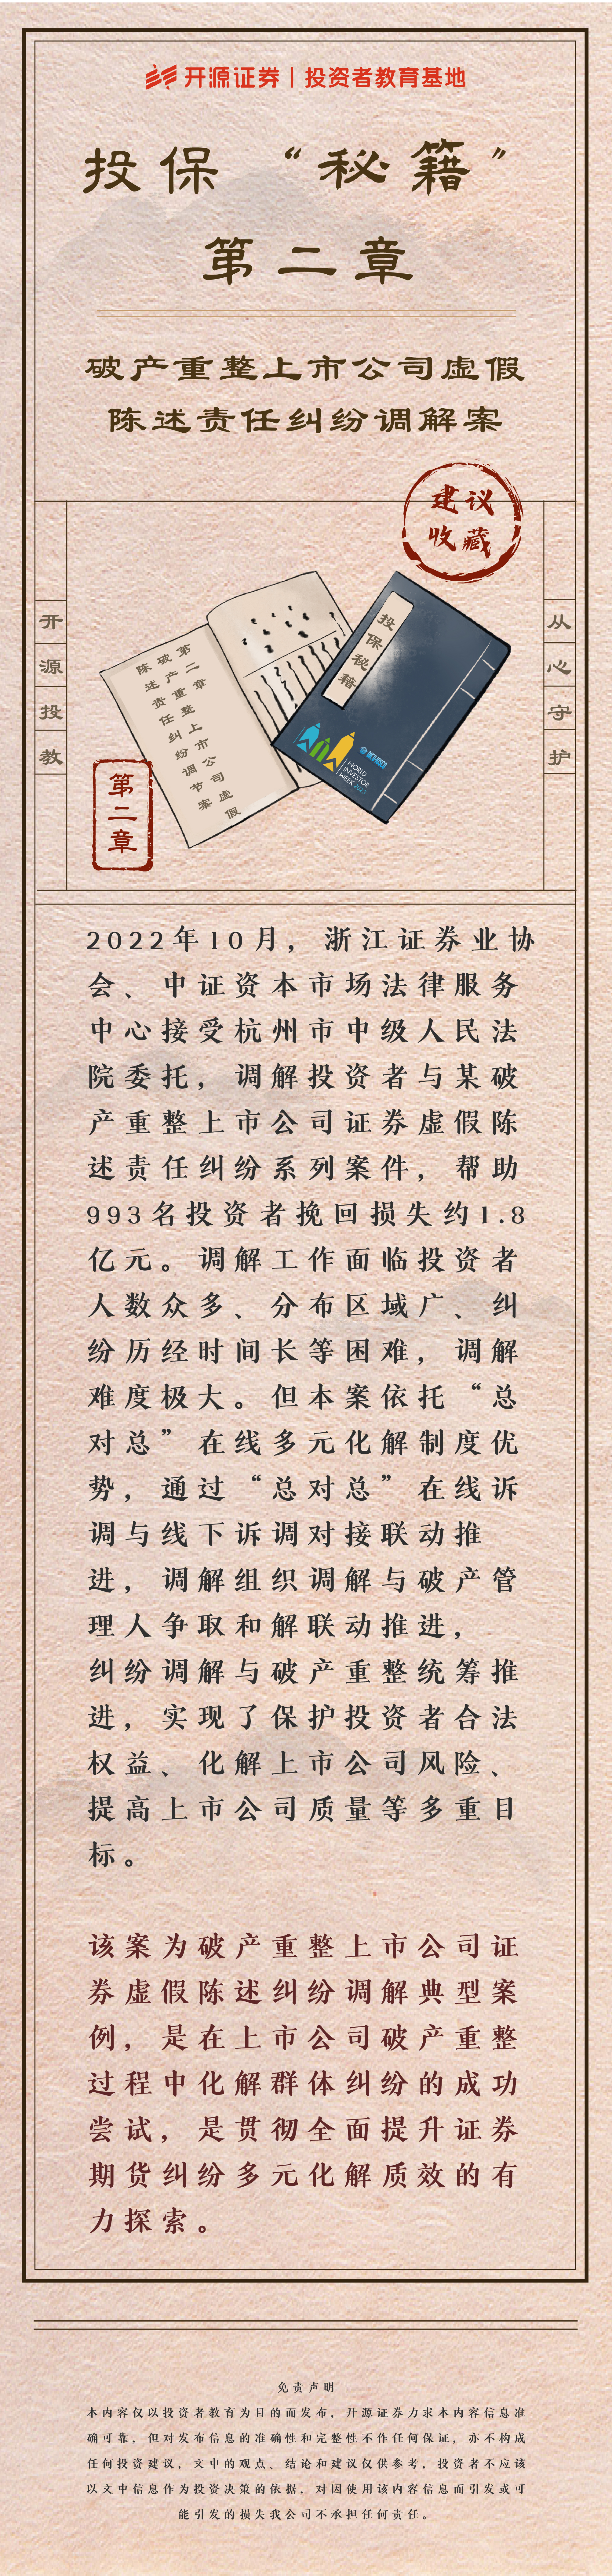 开源证券 | 投资者教育基地
投保“秘籍”
第二章
破产重整上市公司虚假
陈述责任纠纷调解案
建议
收藏
开源投教
从心守护
第二章
破产重整上市公司虚假
陈述责任纠纷调节案
投保秘籍
WORLD
INVESTOR
WEEK2023
第二章
2022年10月，浙江证券业协
会、中证资本市场法律服务
中心接受杭州市中级人民法
院委托，调解投资者与某破
产重整上市公司证券虚假陈
述责任纠纷系列案件，帮助
993名投资者挽回损失约1.8
亿元。调解工作面临投资者
人数众多、分布区域广、纠
纷历经时间长等困难，调解
难度极大。但本案依托“总
对总”在线多元化解制度优
势，通过“总对总”在线诉
调与线下诉调对接联动推
进，调解组织调解与破产管
理人争取和解联动推进，
纠纷调解与破产重整统筹推
进，实现了保护投资者合法
权益、化解上市公司风险、
提高上市公司质量等多重目
标。
该案为破产重整上市公司证
券虚假陈述纠纷调解典型案
例，是在上市公司破产重整
过程中化解群体纠纷的成功
尝试，是贯彻全面提升证券
期货纠纷多元化解质效的有
力探索。
免责声明
本内容仅以投资者教育为目的而发布，开源证券力求本内容信息准
确可靠，但对发布信息的准确性和完整性不作任何保证，亦不构成
任何投资建议，文中的观点、结论和建议仅供参考，投资者不应该
以文中信息作为投资决策的依据，对因使用该内容信息而引发或可
能引发的损失我公司不承担任何责任。